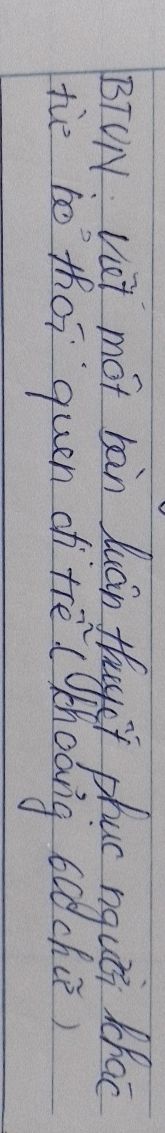 BTVN. Viết một bàn luận thuyết phục người khác
từ bỏ thói quen đi trễ. (khoảng 600 chữ)